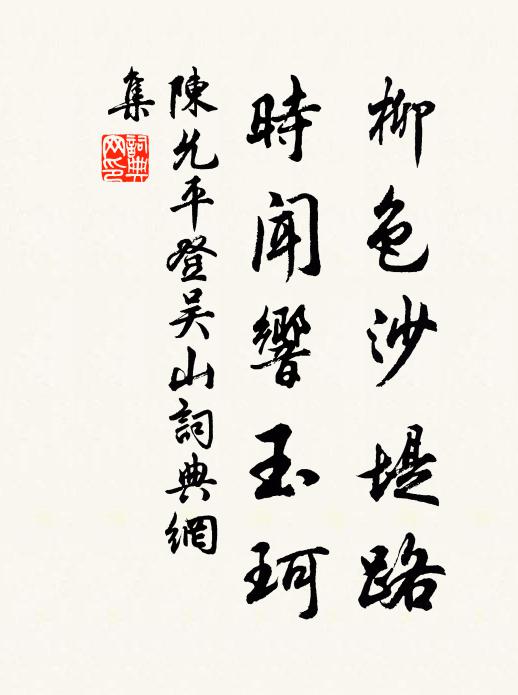 柳色沙堤路
時聞響玉珂
陳允平登吴山詞典網
集
詞典
网印